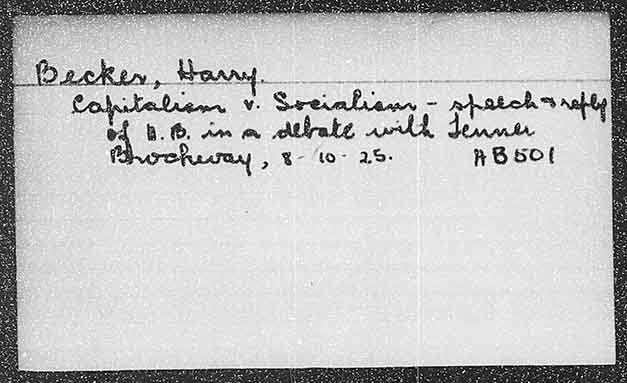 Becker, Harry.
Capitalism v. Socialism - speech & reply
of H. B. in a debate with Fenner
Brockway, 8-10-25. AB501